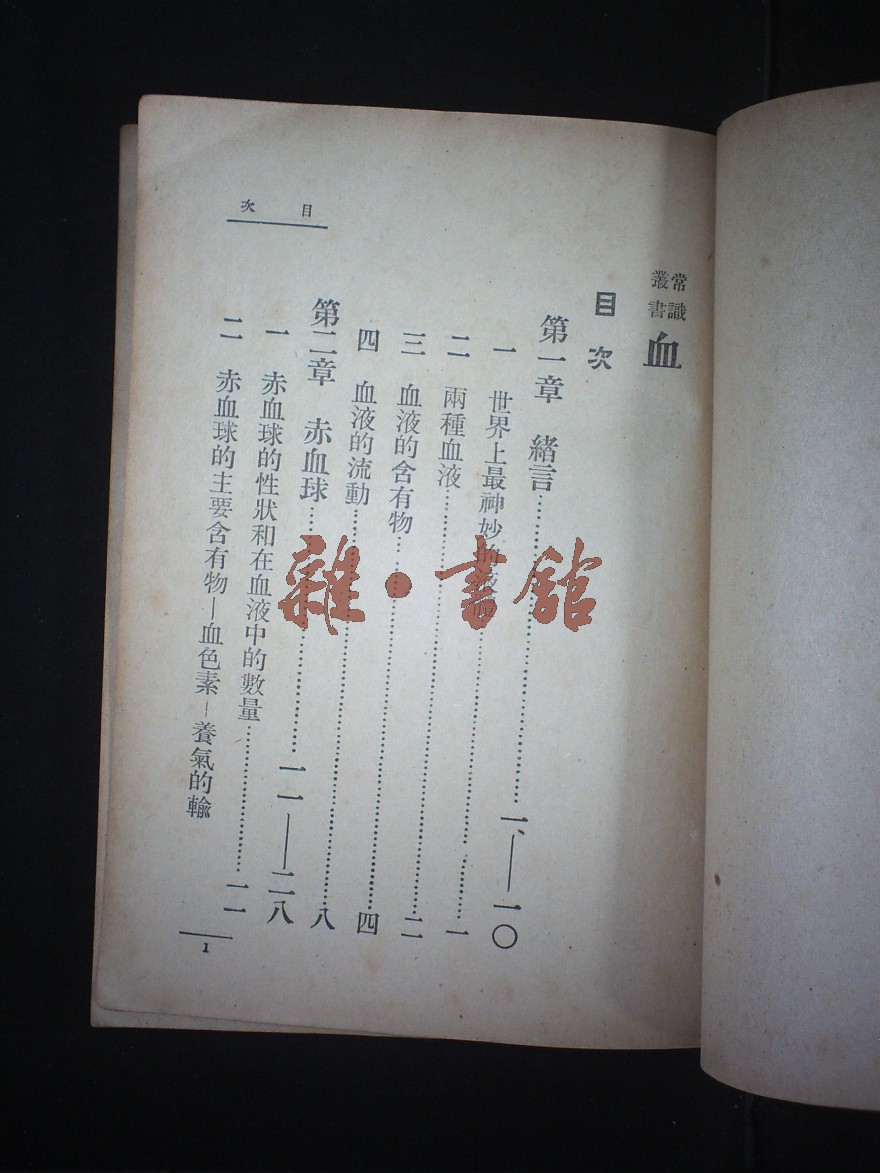 常識叢書 血
目次
第一章 緒言……一——一〇
一 世界上最神妙的液體……一
二 兩種血液……二
三 血液的含有物……四
四 血液的流動……八
第二章 赤血球……一一——二八
一 赤血球的性狀和在血液中的數量……一一
二 赤血球的主要含有物—血色素—養氣的輸
目次
1
雜·書館